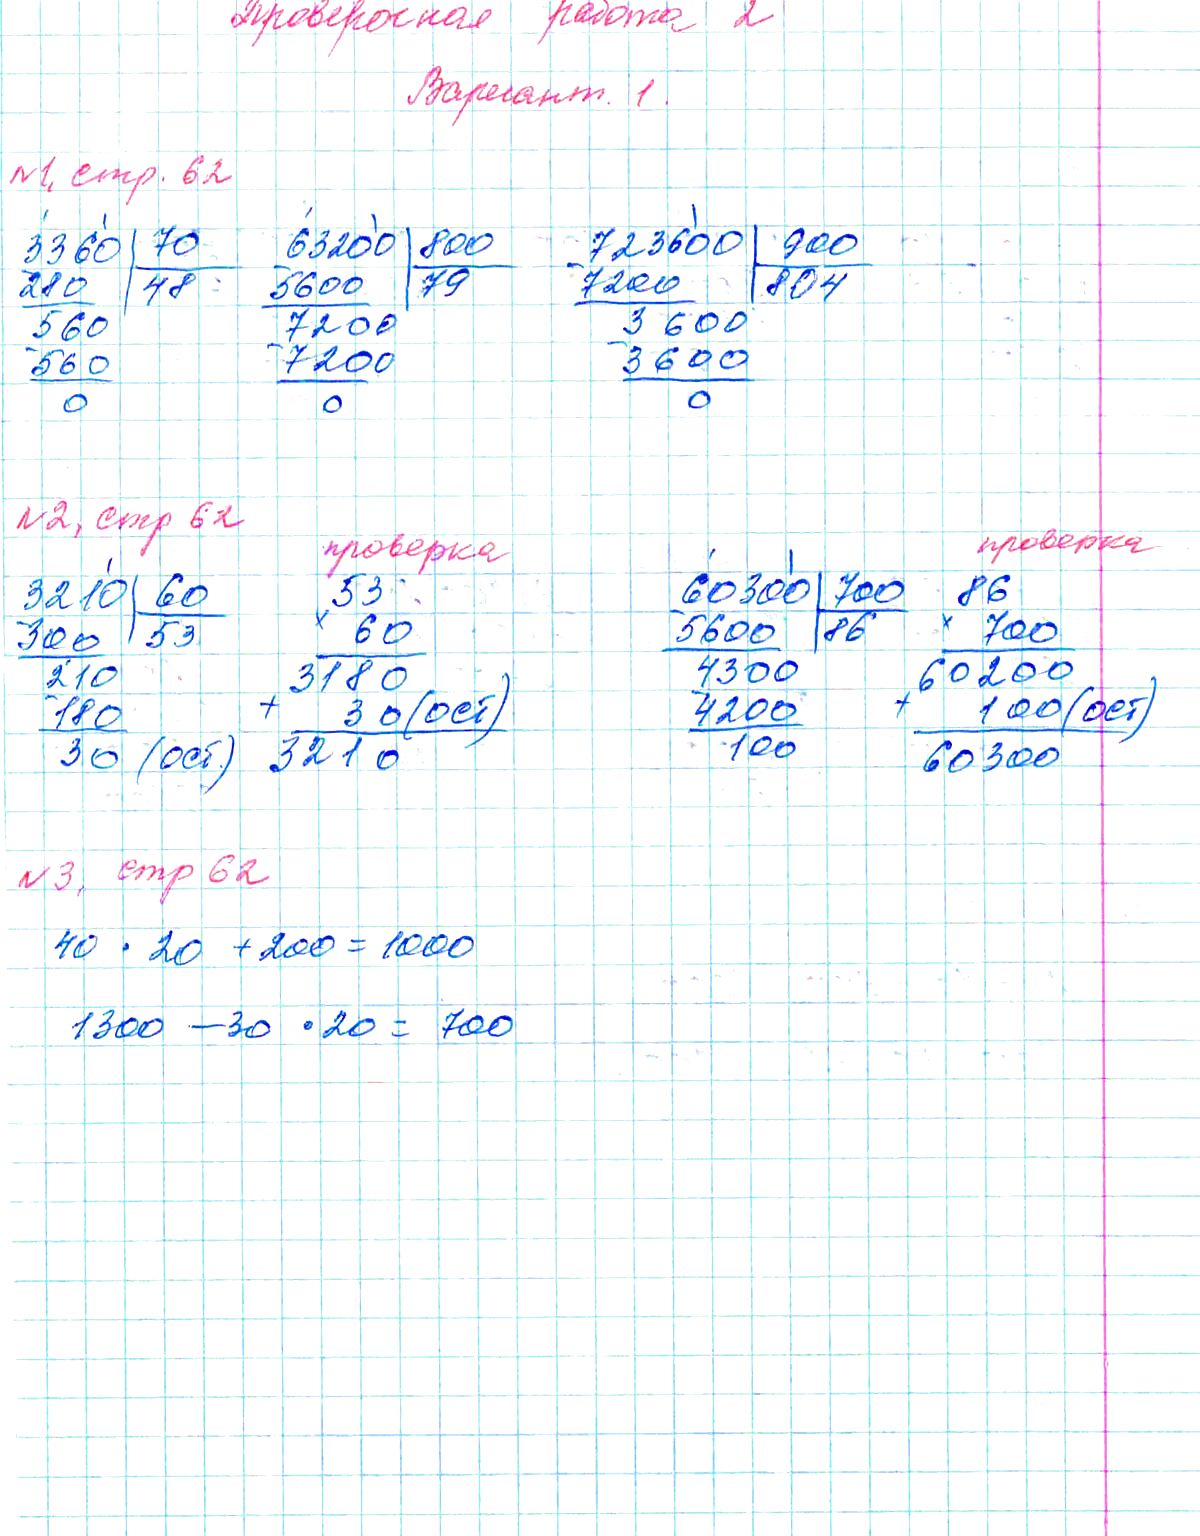 Проверочная работа 2
Вариант. 1.
№1, стр. 62
3360 70 63200 800 723600 900
280 48 5600 79 7200 804
560 7200 3600
560 7200 3600
0 0 0
№2, стр 62
проверка проверка
3210 60 53 60300 700 86
300 53 × 60 5600 86 × 700
210 3180 4300 60200
180 + 30 (ост) 4200 + 100 (ост)
30 (ост.) 3210 100 60300
№3, стр 62
40 · 20 + 200 = 1000
1300 – 30 · 20 = 700